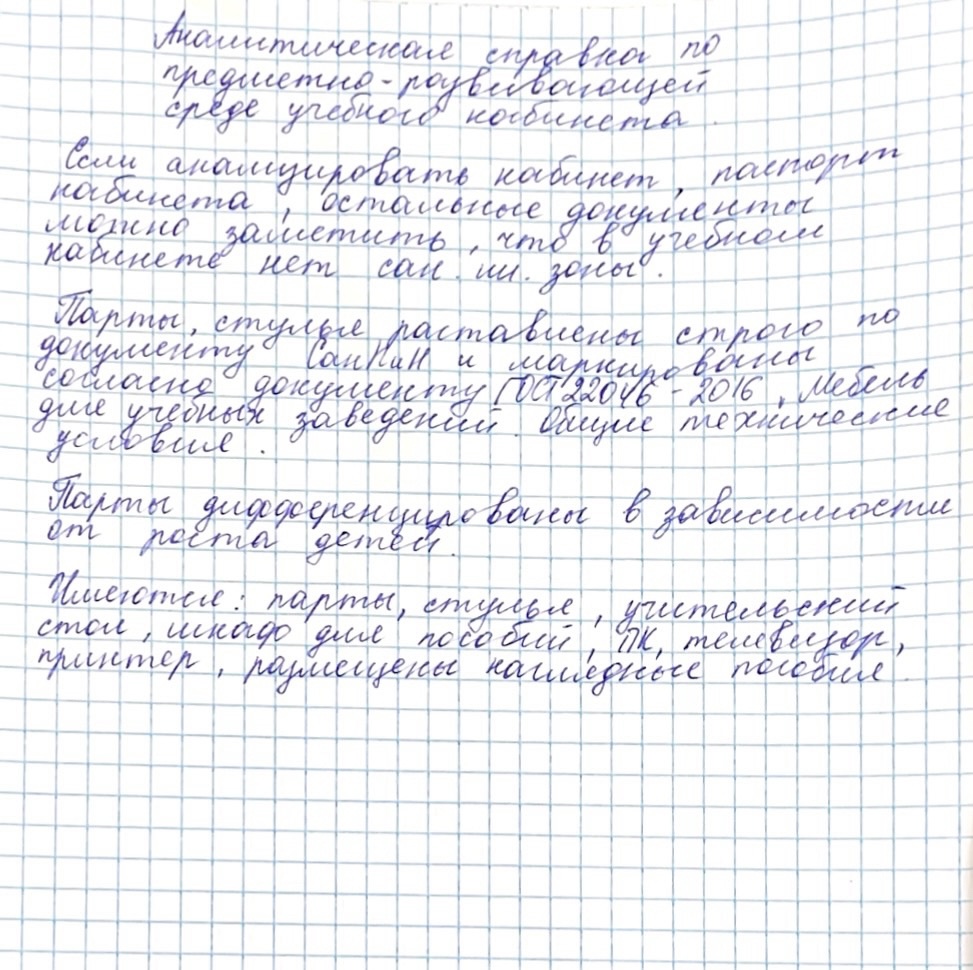 Аналитическая справка по
предметно-развивающей
среде учебного кабинета.
Если анализировать кабинет, паспорт
кабинета, остальные документы
можно заметить, что в учебном
кабинете нет сан. ги. зоны.
Парты, стулья раставлены строго по
документу СанПиН и маркированы
согласно документу ГОСТ 22046-2016, Мебель
для учебных заведений. Общие технические
условия.
Парты дифференцированы в зависимости
от роста детей.
Имеются: парты, стулья, учительский
стол, шкаф для пособий, ПК, телевизор,
принтер, размещены наглядные пособия.